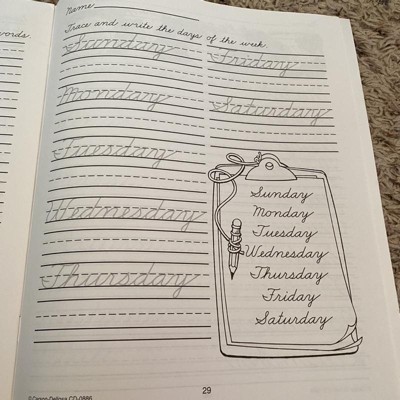 Name
words.
Trace and write the days of the week.
Sunday
Monday
Tuesday
Wednesday
Thursday
Friday
Saturday
Sunday
Monday
Tuesday
Wednesday
Thursday
Friday
Saturday
29
©Carson-Dellosa CD-0886